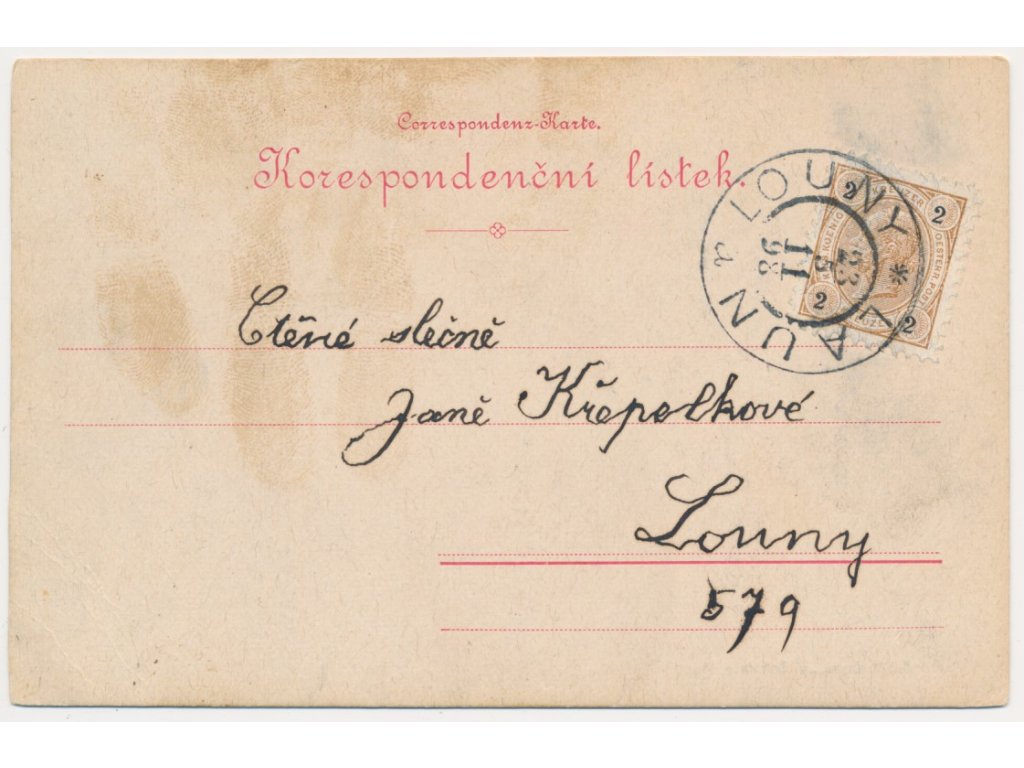 Correspondenz-Karte.
Korespondenční lístek.
LOUNY * LAUN r
23
5
11
98
2 2 2 2
Ctěné slečně
Janě Křepelkové
Louny
579